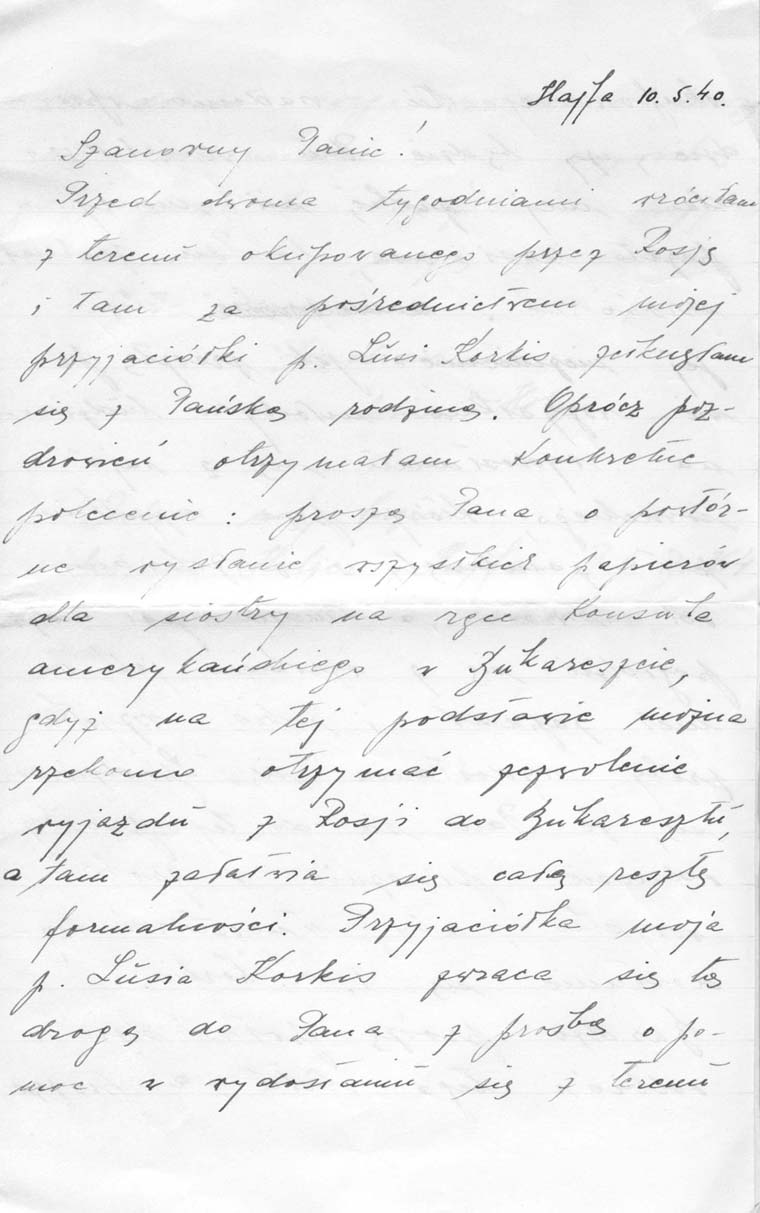 Hajfa 10.5.40.
Szanowny Panie!
Przed dwoma tygodniami wróciłam
z terenu okupowanego przez Rosję
i tam za pośrednictwem mojej
przyjaciółki p. Lusi Korkis zetknęłam
się z Pańską rodziną. Oprócz poz-
drowień otrzymałam konkretne
polecenie: proszą Pana o powtór-
ne wysłanie wszystkich papierów
dla siostry na ręce Konsula
amerykańskiego w Bukareszcie,
gdyż na tej podstawie można
rzekomo otrzymać zezwolenie
wyjazdu z Rosji do Bukaresztu,
a tam załatwia się całą resztę
formalności. Przyjaciółka moja
p. Lusia Korkis zwraca się tą
drogą do Pana z prośbą o po-
moc w wydostaniu się z terenu